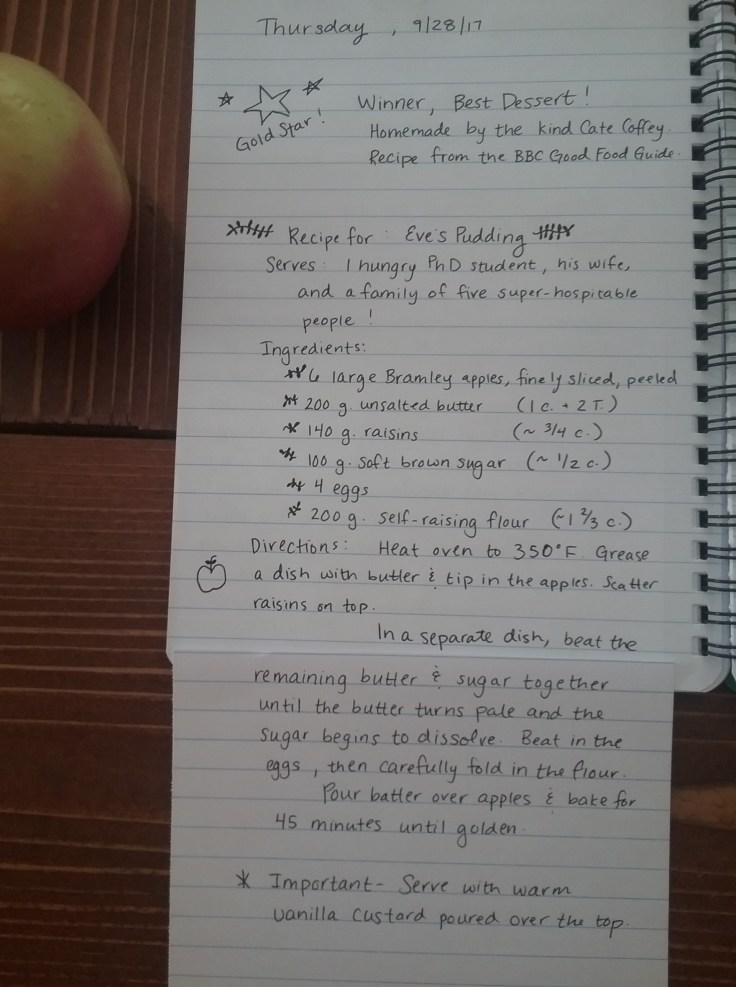 Thursday, 9/28/17
Gold Star!
Winner, Best Dessert!
Homemade by the kind Cate Coffey.
Recipe from the BBC Good Food Guide.
Recipe for: Eve's Pudding
Serves: 1 hungry PhD student, his wife,
and a family of five super-hospitable
people!
Ingredients:
6 large Bramley apples, finely sliced, peeled
200 g. unsalted butter (1 c. + 2 T.)
140 g. raisins (~ 3/4 c.)
100 g. soft brown sugar (~ 1/2 c.)
4 eggs
200 g. self-raising flour (~1 2/3 c.)
Directions: Heat oven to 350°F. Grease
a dish with butter & tip in the apples. Scatter
raisins on top.
In a separate dish, beat the
remaining butter & sugar together
until the butter turns pale and the
sugar begins to dissolve. Beat in the
eggs, then carefully fold in the flour.
Pour batter over apples & bake for
45 minutes until golden.
* Important- Serve with warm
vanilla custard poured over the top.